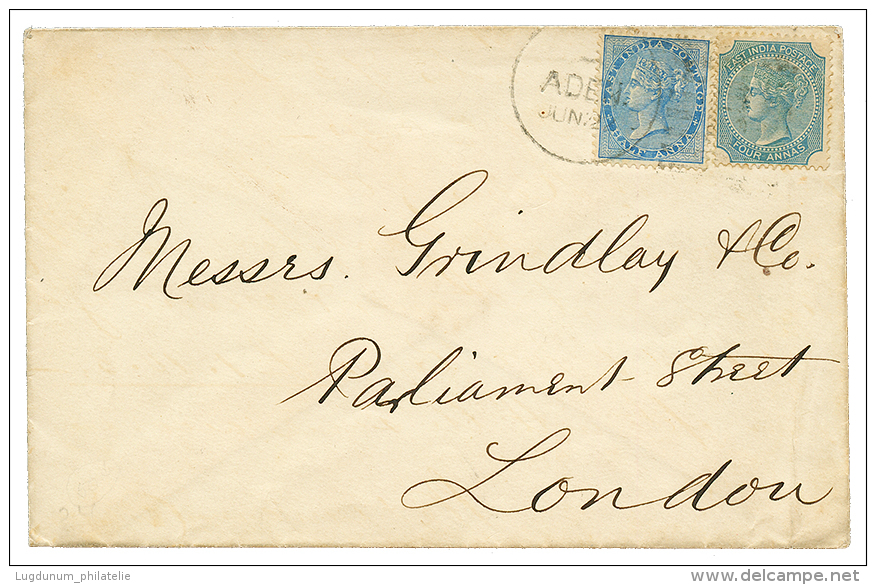 ADEN
JUN
EAST INDIA POSTAGE
HALF ANNA
EAST INDIA POSTAGE
FOUR ANNAS
Messrs. Grindlay & Co.
Parliament Street
London
Lugdunum_philatelie
delcampe.net